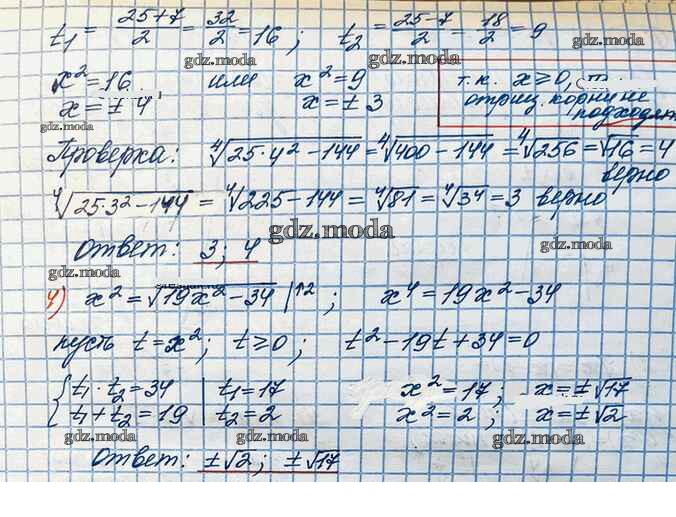 t₁ = (25+7)/2 = 32/2 = 16; t₂ = (25−7)/2 = 18/2 = 9
gdz.moda gdz.moda
x² = 16 или x² = 9
x = ± 4, x = ± 3
т.к. x ≥ 0, то
отриц. корни не
подходят
gdz.moda
gdz.moda
Проверка: ⁴√(25·4² − 144) = ⁴√(400 − 144) = ⁴√256 = √16 = 4
верно
⁴√(25·3² − 144) = ⁴√(225 − 144) = ⁴√81 = ⁴√3⁴ = 3 верно
gdz.moda
Ответ: 3; 4
gdz.moda
gdz.moda
4) x² = √(19x² − 34) |↑2; x⁴ = 19x² − 34
пусть t = x²; t ≥ 0; t² − 19t + 34 = 0
{ t₁ · t₂ = 34 | t₁ = 17 x² = 17; x = ±√17
t₁ + t₂ = 19 | t₂ = 2 x² = 2; x = ±√2
gdz.moda gdz.moda
Ответ: ±√2; ±√17
gdz.moda